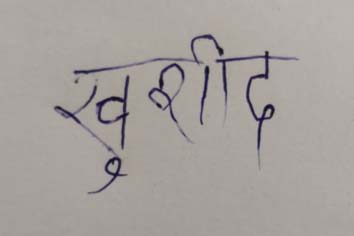 खुर्शीद